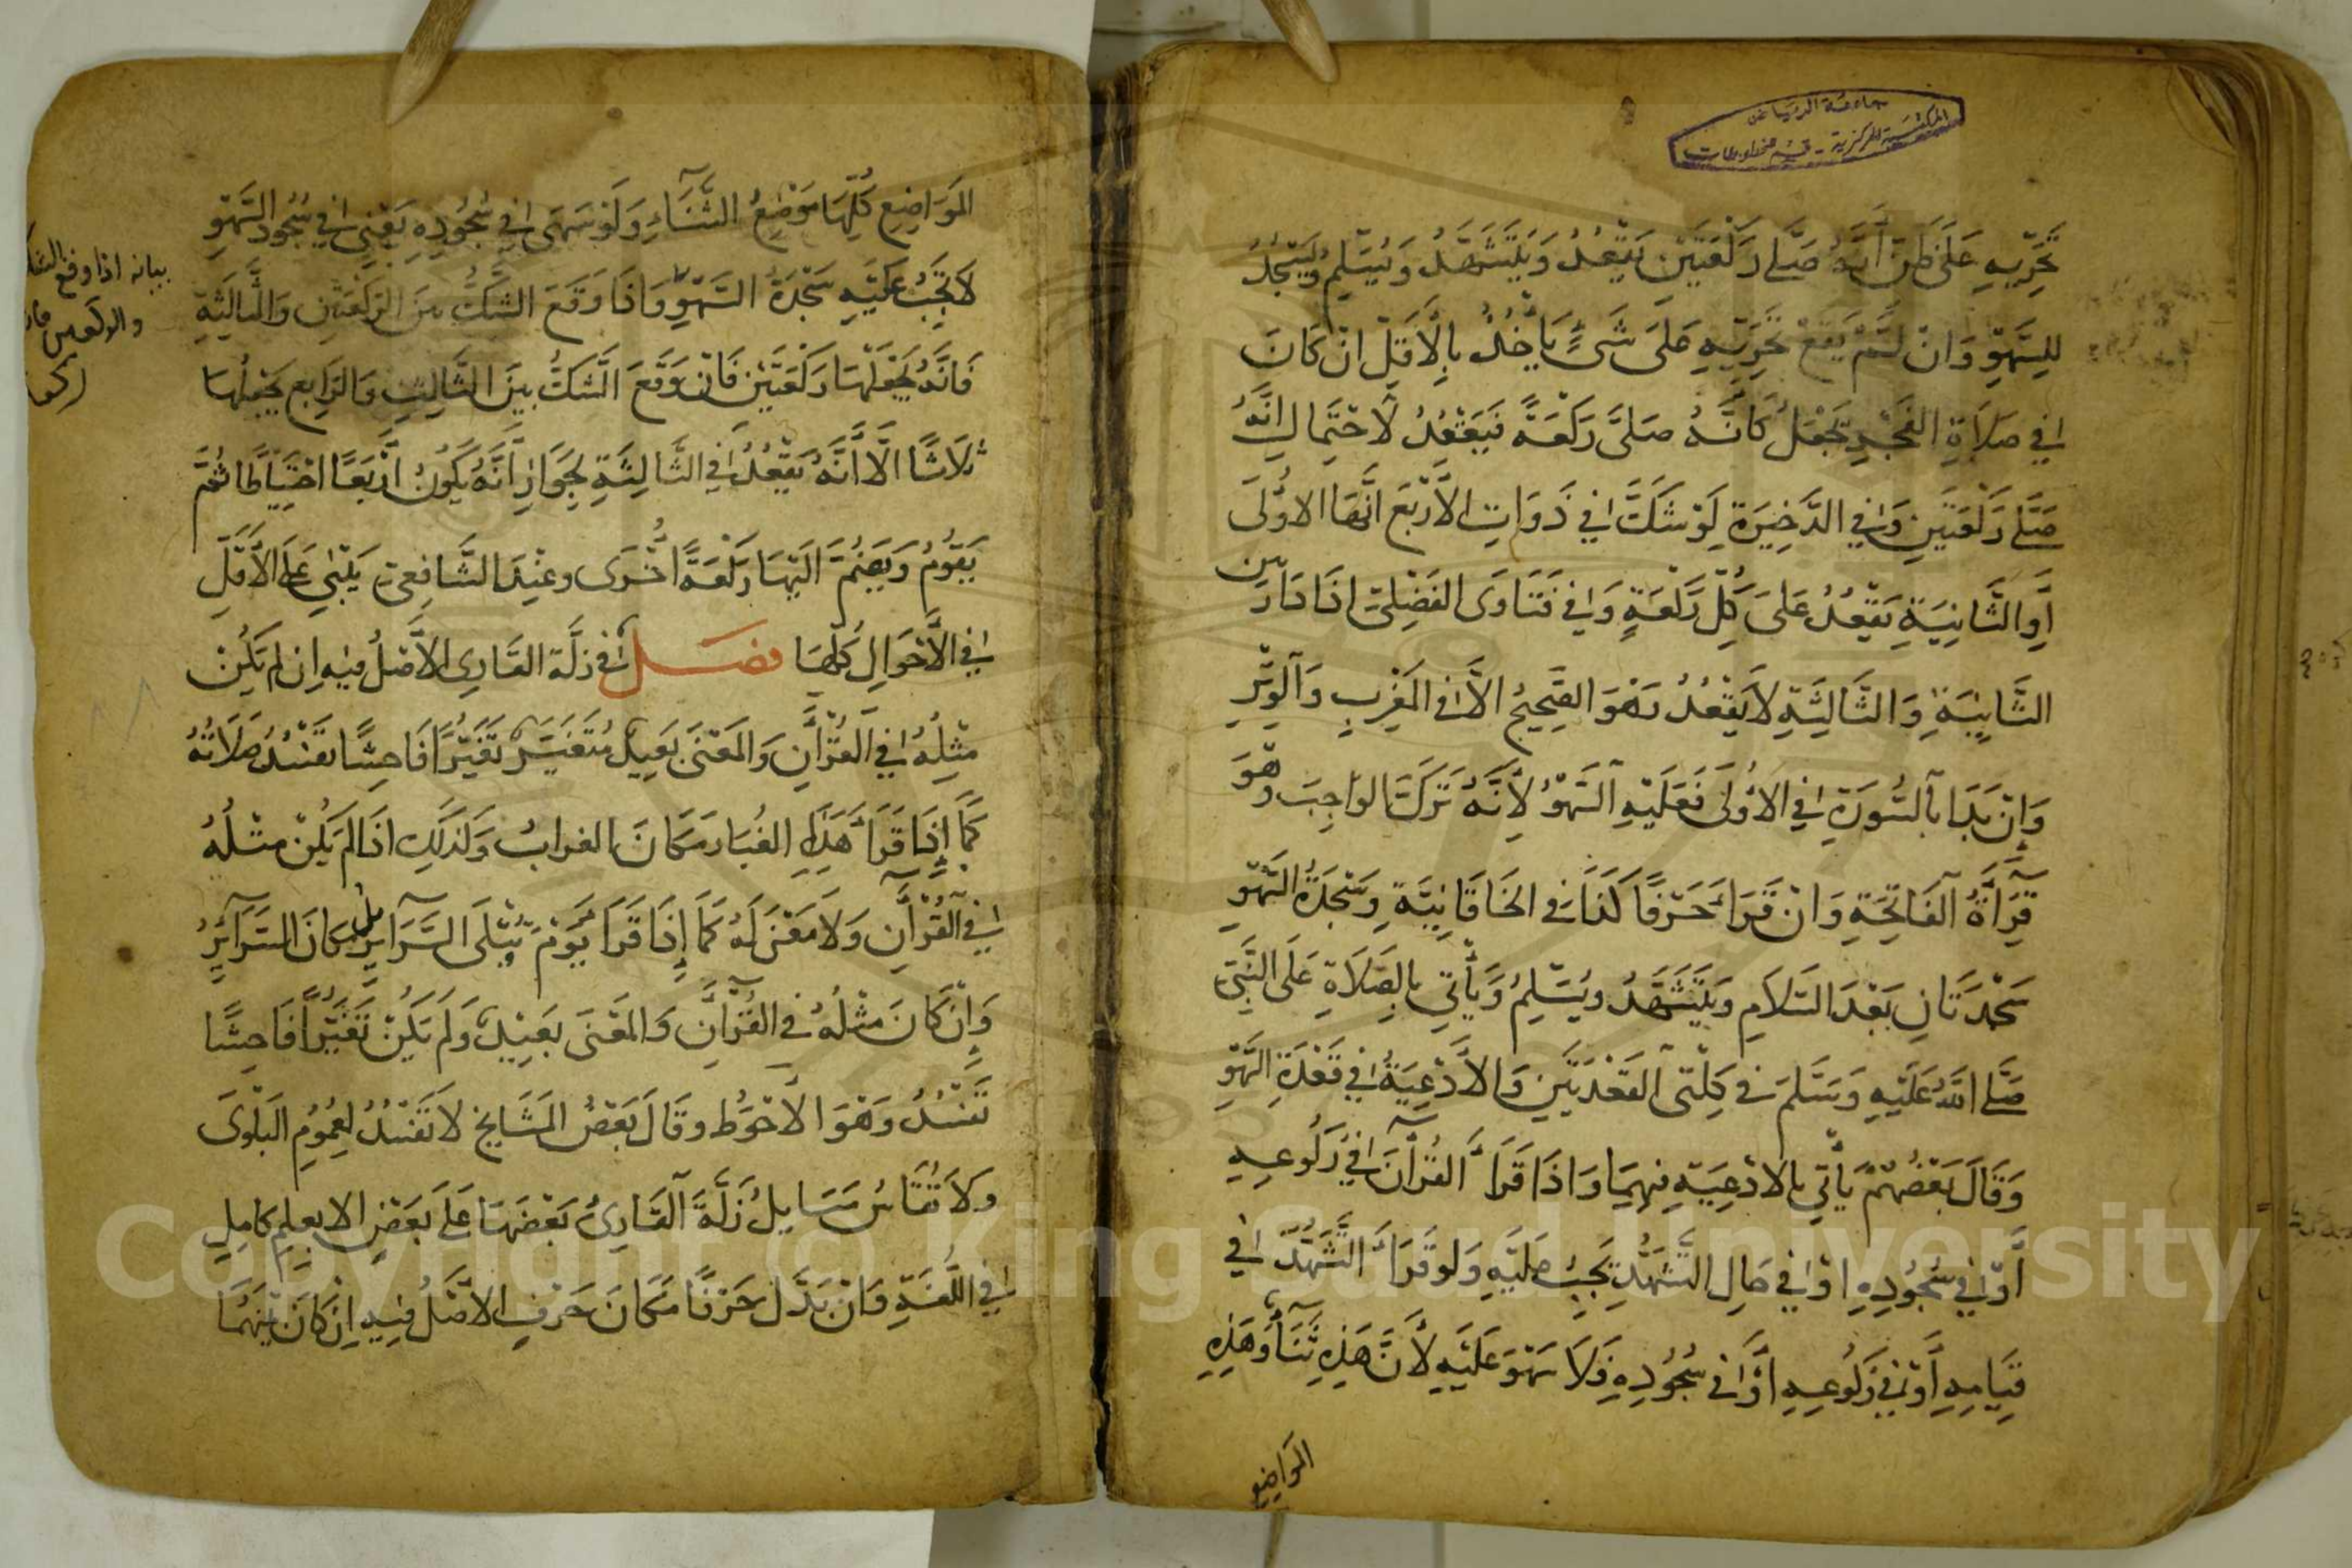 جامعة الرياض
المكتبة المركزية - قسم مخطوطات
تَحَرِّيهِ عَلَى ظَنّ أَنَّهُ صَلَّى رَكْعَتَيْنِ يَقْعُدُ وَيَتَشَهَّدُ وَيُسَلِّمُ وَيَسْجُدُ
لِلسَّهْوِ وَانْ لَمْ يَقَعْ تَحَرِّيهِ عَلَى شَىْءٍ يَأْخُذُ بِالْأَقَلِّ انْ كَانَ
فِي صَلَاةِ الفَجْرِ يَجْعَلُ كَأَنَّهُ صَلَّى رَكْعَةً فَيَقْعُدُ لِاحْتِمَالِ انَّهُ
صَلَّى رَكْعَتَيْنِ وَفِي الذَّخِيرَةِ لَوْ شَكَّ فِي ذَوَاتِ الأَرْبَعِ انَّهَا الاُولَى
أَوِ الثَّانِيَةِ يَقْعُدُ عَلَى كُلِّ رَكْعَةٍ وَفِي فَتَاوَى الفَضْلِيّ اذَا دَارَ بين
الثَّانِيَةِ وَالثَّالِثَةِ لَا يَقْعُدُ وَهُوَ الصَّحِيحُ الَّا فِي المَغْرِبِ وَالوِتْرِ
وَإِنْ بَدَا بِالسُّورَةِ فِي الأُولَى فَعَلَيْهِ السَّهْوُ لِأَنَّهُ تَرَكَ الوَاجِبَ وَهُوَ
قِرَأَةُ الفَاتِحَةِ وَانْ قَرَأَ حَرْفًا كَذَا فِي الخَاقَانِيَّةِ وَسَجْدَةُ السَّهْوِ
سَجْدَتَانِ بَعْدَ السَّلَامِ وَيَتَشَهَّدُ وَيُسَلِّمُ وَيَأْتِي بِالصَّلَاةِ عَلَى النَّبِيّ
صَلَّى اللَّهُ عَلَيْهِ وَسَلَّمَ فِي كِلْتَى القَعْدَتَيْنِ وَالأَدْعِيَةُ فِي قَعْدَةِ السَّهْوِ
وَقَالَ بَعْضُهُمْ يَأْتِي بِالادْعِيَةِ فِيهِمَا وَاذَا قَرَأَ القُرْآنَ فِي رُكُوعِهِ
أَوْ فِي سُجُودِهِ اوْ فِي حَالِ التَّشَهُّدِ يَجِبُ عَلَيْهِ وَلَو قَرَأَ التَّشَهُّدَ فِي
قِيَامِهِ أَوْ فِي رُكُوعِهِ أَوْ فِي سُجُودِهِ فَلَا سَهْوَ عَلَيْهِ لِأَنَّ هَذِهِ ثَنَاءٌ وَهَذِهِ
المَوَاضِع
المَوَاضِعِ كُلِّهَا مَوْضِعُ الثَّنَاءِ وَلَوْ سَهَى فِي سُجُودِهِ يَعْنِي فِي سُجُودِ السَّهْوِ
لَا تَجِبُ عَلَيْهِ سَجْدَةُ السَّهْوِ وَاذَا وَقَعَ الشَّكُّ بينَ الرَكْعَتَيْنِ وَالثَّالِثَةِ
فَانَّهُ يَجْعَلُهَا رَكْعَتَيْنِ فَانْ وَقَعَ الشَّكُّ بَيْنَ الثَّالِثِ وَالرَّابِعِ يَجْعَلُهَا
ثَلَاثًا الَّا أَنَّهُ يَقْعُدُ فِي الثَّالِثَةِ لِجَوَازِ أَنَّهُ يَكُونُ أَرْبَعًا احْتِيَاطًا ثُمَّ
يَقُومُ وَيَضُمُّ الَيْهَا رَكْعَةً أُخْرَى وعِنْدَ الشَّافِعِيّ يَبْنِي عَلَى الأَقَلِّ
فِي الأَحْوَالِ كُلِّهَا فصل فِي زَلَّة القَارِي الأَصْلُ فِيهِ اِن لَم يَكُنْ
مِثْلُهُ فِي القُرْآنِ وَالمَعْنَى بَعِيدٌ مُتَغَيِّرٌ تَغَيُّرًا فَاحِشًا تَفْسُدُ صَلَاتُهُ
كَمَا إِذَا قَرَأَ هَذَا الغُبَار مَكَانَ الغرابُ وَكَذَلِكَ اذَا لَمْ يَكُنْ مِثْلُهُ
فِي القُرْآنِ وَلَا مَعْنَى لَهُ كَمَا إِذَا قَرَا يَوْمَ تُبْلَى السَّرَايِل مَكَانَ السَّرَآئِرُ
وَإِنْ كَانَ مِثْلُهُ فِي القُرْآنِ وَالمَعْنَى بَعِيدٌ وَلَمْ يَكُنْ تَغَيُّرًا فَاحِشًا
تَفْسُدُ وَهُوَ الأَحْوَطُ وقَالَ بَعْضُ المَشَايِخِ لَا تَفْسُدُ لِعُمُومِ البَلْوَى
وَلَا تُقَاسُ مَسَايِلُ زَلَّةِ القَارِئُ بَعْضُهَا عَلَى بَعْضٍ الا بِعِلمٍ كَامِلٍ
فِي اللُّغَةِ وَانْ بَدَّلَ حَرْفًا مَكَانَ حَرْفٍ الأَصْلُ فِيهِ اِنْ كَانَ بَيْنَهُمَا
بيانه اذا وقع الشك
والركعتين